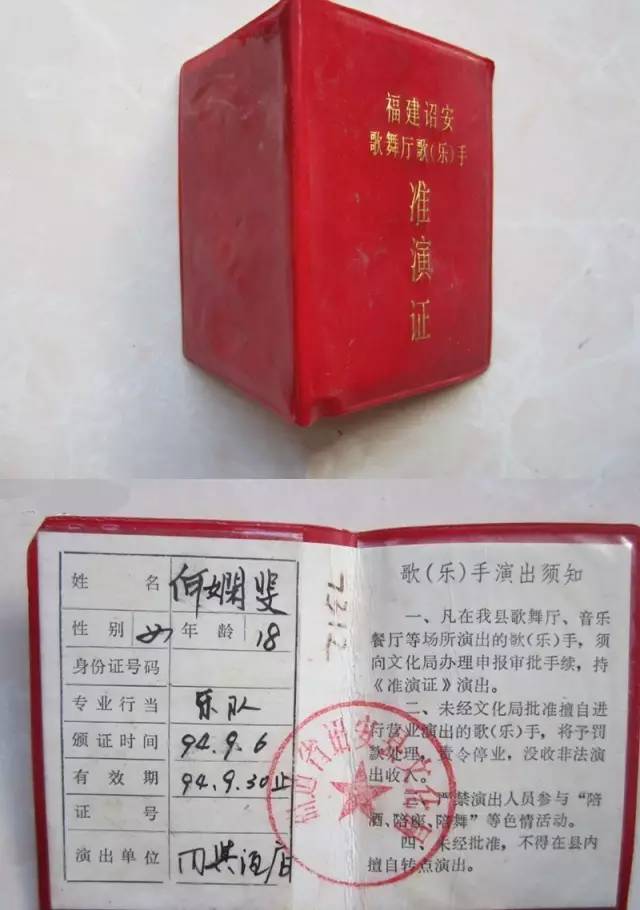 福建诏安
歌舞厅歌(乐)手
准演证
姓名 何娴斐
性别 女 年龄 18
身份证号码
专业行当 乐队
颁证时间 94.9.6
有效期 94.9.30止
证号
演出单位 酒店
7312
歌(乐)手演出须知
一、凡在我县歌舞厅、音乐
餐厅等场所演出的歌(乐)手,须
向文化局办理申报审批手续,持
《准演证》演出。
二、未经文化局批准擅自进
行营业演出的歌(乐)手,将予罚
款处理,责令停业,没收非法演
出收入。
三、严禁演出人员参与“陪
酒、陪座、陪舞”等色情活动。
四、未经批准,不得在县内
擅自转点演出。
福建省诏安县文化局